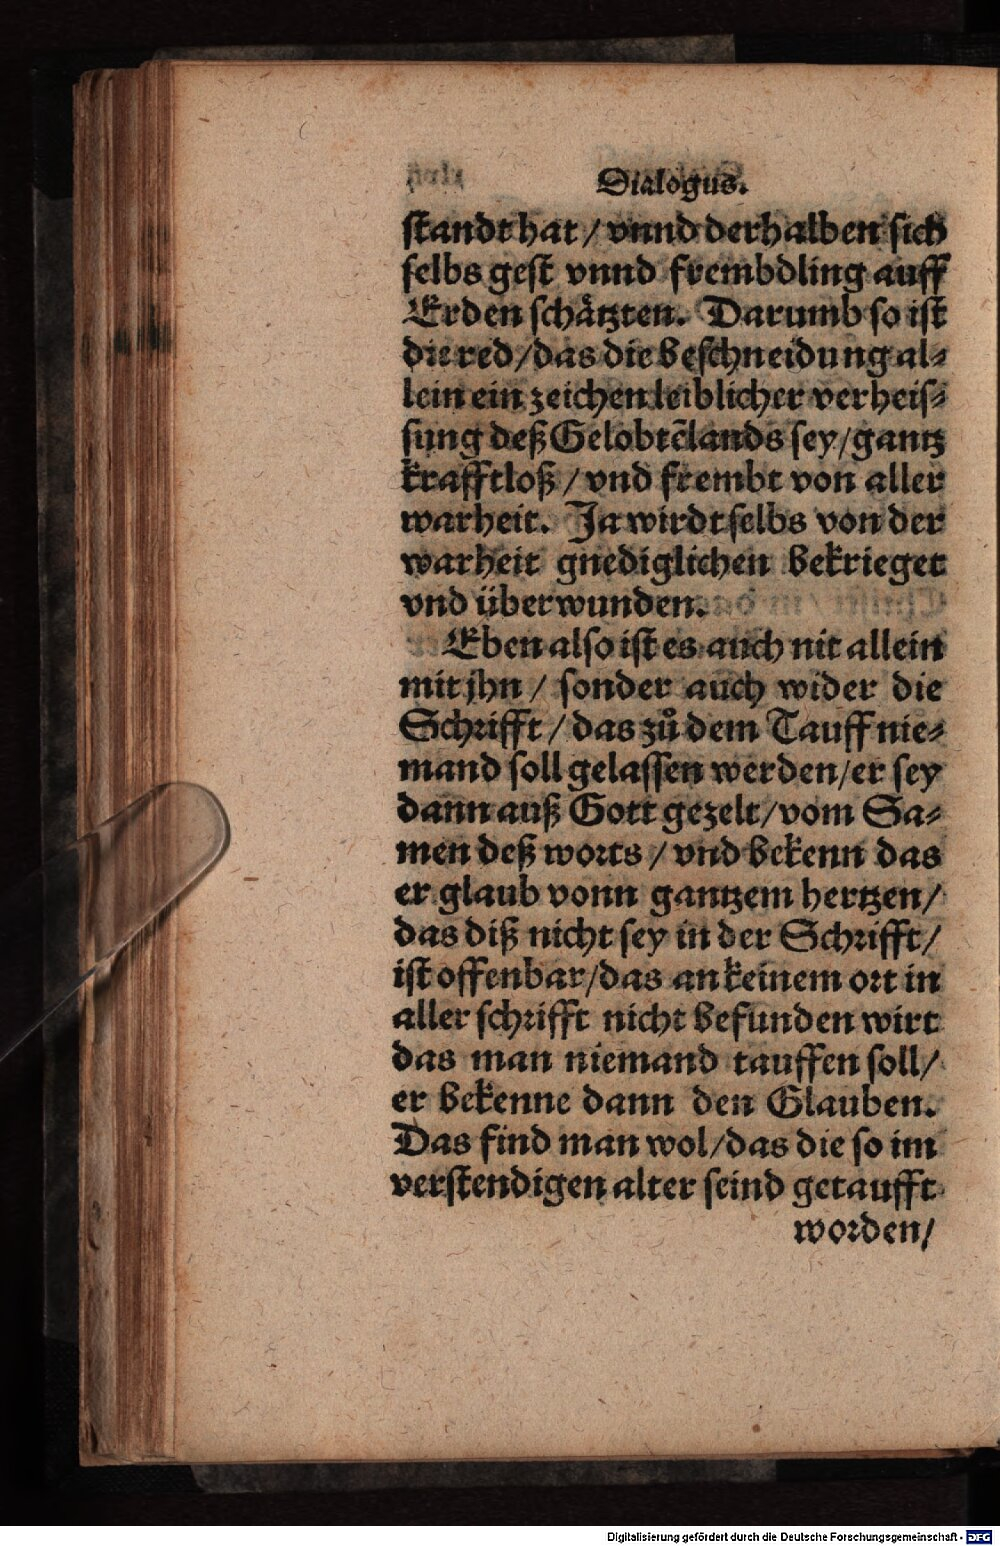 Dialogus.
standt hat / vnnd derhalben sich
selbs gest vnnd frembdling auff
Erden schätzten. Darumb so ist
die red / das die beschneidung al⸗
lein ein zeichen leiblicher verheis⸗
sung deß Gelobtẽlands sey / gantz
krafftloß / vnd frembt von aller
warheit. Ja wirdt selbs von der
warheit gnediglichen bekrieget
vnd überwunden.
Eben also ist es auch nit allein
mit jhn / sonder auch wider die
Schrifft / das zů dem Tauff nie⸗
mand soll gelassen werden / er sey
dann auß Gott gezelt / vom Sa⸗
men deß worts / vnd bekenn das
er glaub vonn gantzem hertzen /
das diß nicht sey in der Schrifft /
ist offenbar / das an keinem ort in
aller schrifft nicht befunden wirt
das man niemand tauffen soll /
er bekenne dann den Glauben.
Das find man wol / das die so im
verstendigen alter seind getaufft
worden /
Digitalisierung gefördert durch die Deutsche Forschungsgemeinschaft - DFG